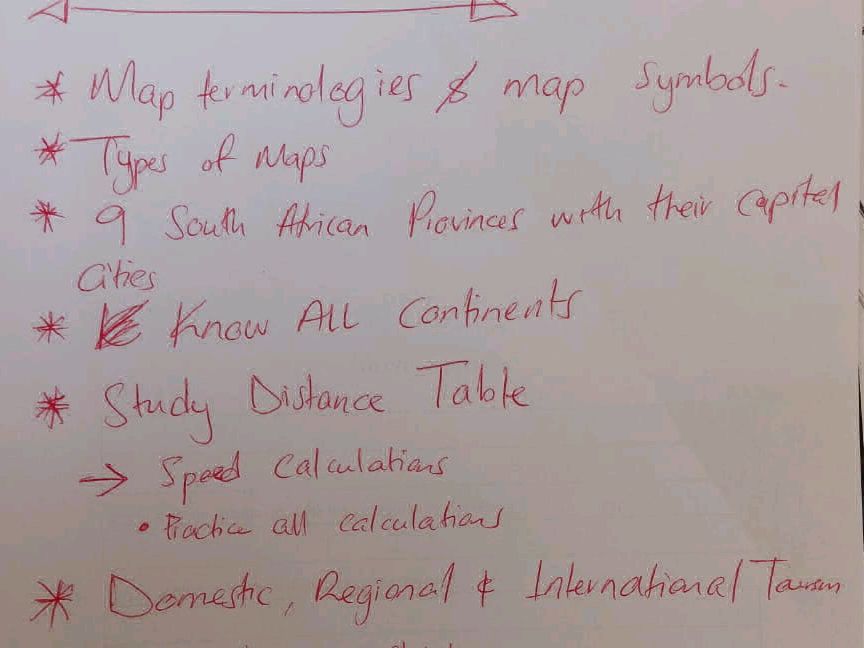 * Map terminologies & map symbols.
* Types of Maps
* 9 South African Provinces with their capital
Cities
* Know All Continents
* Study Distance Table
→ Speed Calculations
• Practice all calculations
* Domestic, Regional & International Tourism